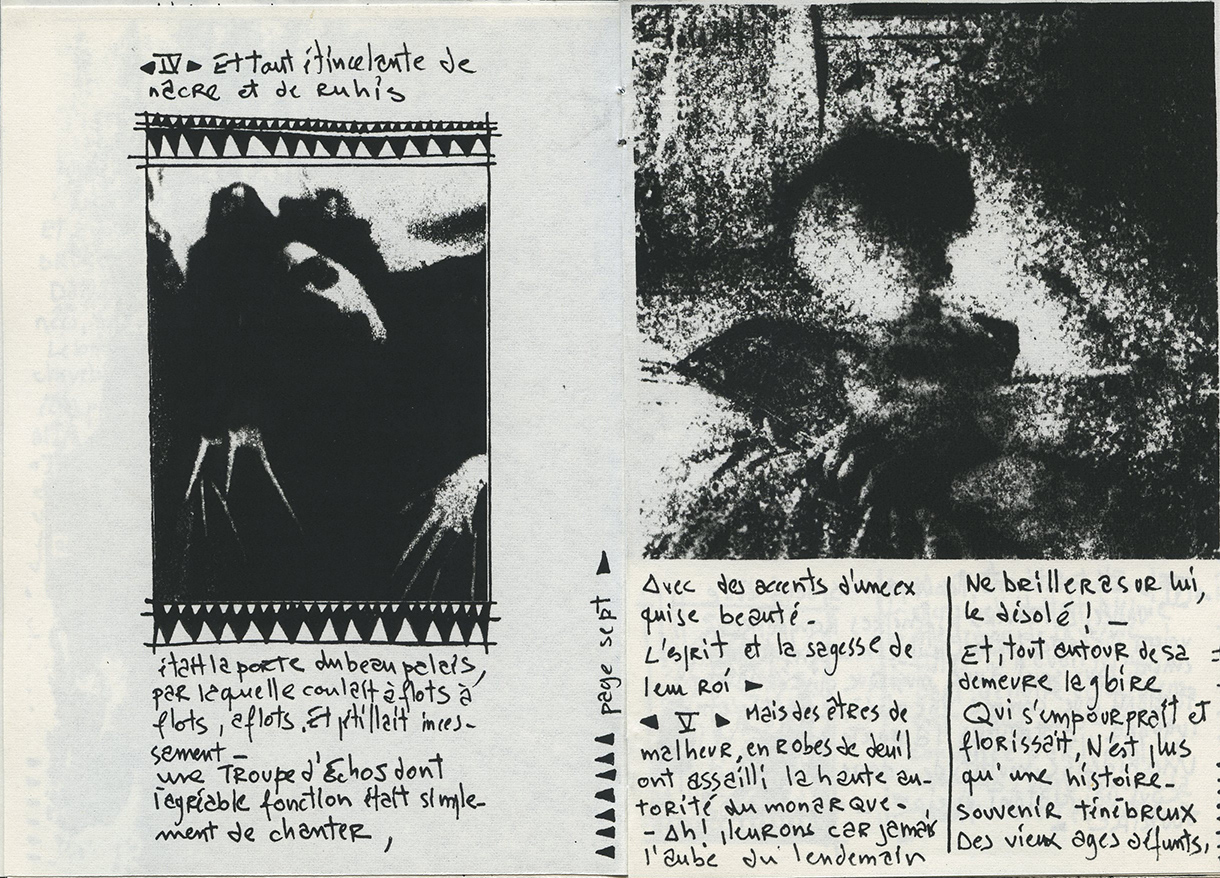 ◄IV► Et tout étincelante de
nacre et de rubis
était la porte du beau palais,
par laquelle coulait à flots à
flots, à flots. Et pétillait inces-
sement –
une Troupe d'Échos dont
l'agréable fonction était simple-
ment de chanter,
page sept
Avec des accents d'une ex
quise beauté.
L'esprit et la sagesse de
leur Roi ►
◄ V ► Mais des êtres de
malheur, en robes de deuil
ont assailli la haute au-
torité du monarque.
– Ah! pleurons car jamais
l'aube du lendemain
Ne brillera sur lui,
le désolé ! –
Et, tout autour de sa
demeure la gloire
Qui s'empourprait et
florissait, N'est plus
qu'une histoire-
souvenir ténébreux
Des vieux ages défunts,